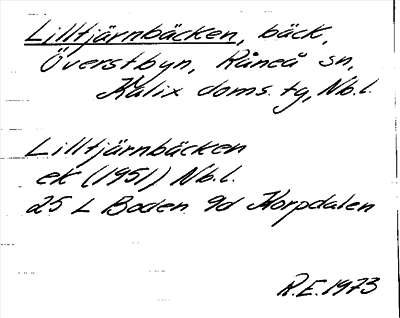 Lilltjärnbäcken, bäck,
Överstbyn, Råneå sn,
Kalix doms. tg, Nb.l.
Lilltjärnbäcken
ek (1951) Nb.l.
25 L Boden 9d Korpdalen
R.E. 1973